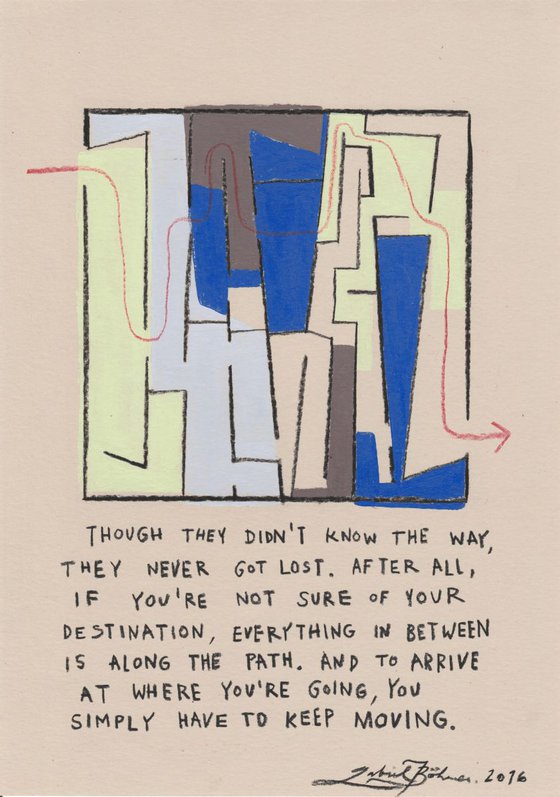 THOUGH THEY DIDN'T KNOW THE WAY,
THEY NEVER GOT LOST. AFTER ALL,
IF YOU'RE NOT SURE OF YOUR
DESTINATION, EVERYTHING IN BETWEEN
IS ALONG THE PATH. AND TO ARRIVE
AT WHERE YOU'RE GOING, YOU
SIMPLY HAVE TO KEEP MOVING.
Gabriel Böhmer. 2016